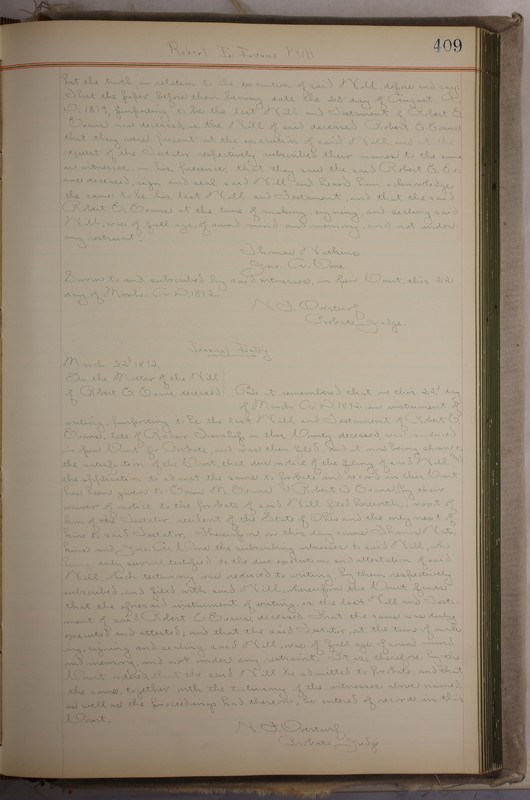 409
Robert E. Evans Will
but the truth in relation to the execution of said Will, depose and say:
That the paper before them bearing date the 28 day of August, A.
D. 1879, purporting to be the last Will and Testament of Robert E.
Evans now deceased, is the Will of said deceased Robert E. Evans
that they were present at the execution of said Will, and at the
request of the Testator respectively subscribed their names to the same
as witnesses, in his presence, that they saw the said Robert E. Ev-
ans deceased, sign and seal said Will and heard him acknowledge
the same to be his last Will and Testament, and that the said
Robert E. Evans at the time of making, signing, and sealing said
Will, was of full age, of sound mind and memory, and not under
any restraint.
Thomas Watkins
Jno. A.
Sworn to and subscribed by said witnesses, in open Court, this 22
day of March A. D. 1892.
N. J. Overturf
Probate Judge.
Journal Entry
March 22 1892.
In the Matter of the Will
of Robert E. Evans deceased Be it remembered that on this 22 day
of March A. D. 1892 an instrument of
writing, purporting to be the last Will and Testament of Robert E.
Evans, late of Township in this County deceased, was produced
in open Court for Probate, and was then filed. And it now being shown to
the satisfaction of the Court that due notice of the filing of said Will and
the application to admit the same to probate and record in this Court
has been given to M. Evans Robert J. Evans by their
waiver of notice to the probate of said Will filed herewith, next of
kin of the Testator, resident of the State of Ohio and the only next of
kin to said Testator. Thereupon on this day came Thomas Wat-
kins and Jno. A. the subscribing witnesses to said Will, who
being duly sworn, testified to the due execution and attestation of said
Will, which testimony was reduced to writing, by them respectively
subscribed, and filed with said Will, whereupon the Court finds
that the aforesaid instrument of writing, is the last Will and Testa-
ment of said Robert E. Evans, deceased. That the same was duly
executed and attested; and that the said Testator, at the time of mak-
ing, signing and sealing said Will, was of full age, of sound mind
and memory, and not under any restraint. It is therefore by the
Court ordered, that the said Will be admitted to probate, and that
the same, together with the testimony of the witnesses above named,
as well as the proceedings had thereon, be entered of record in this
Court.
N. J. Overturf
Probate Judge